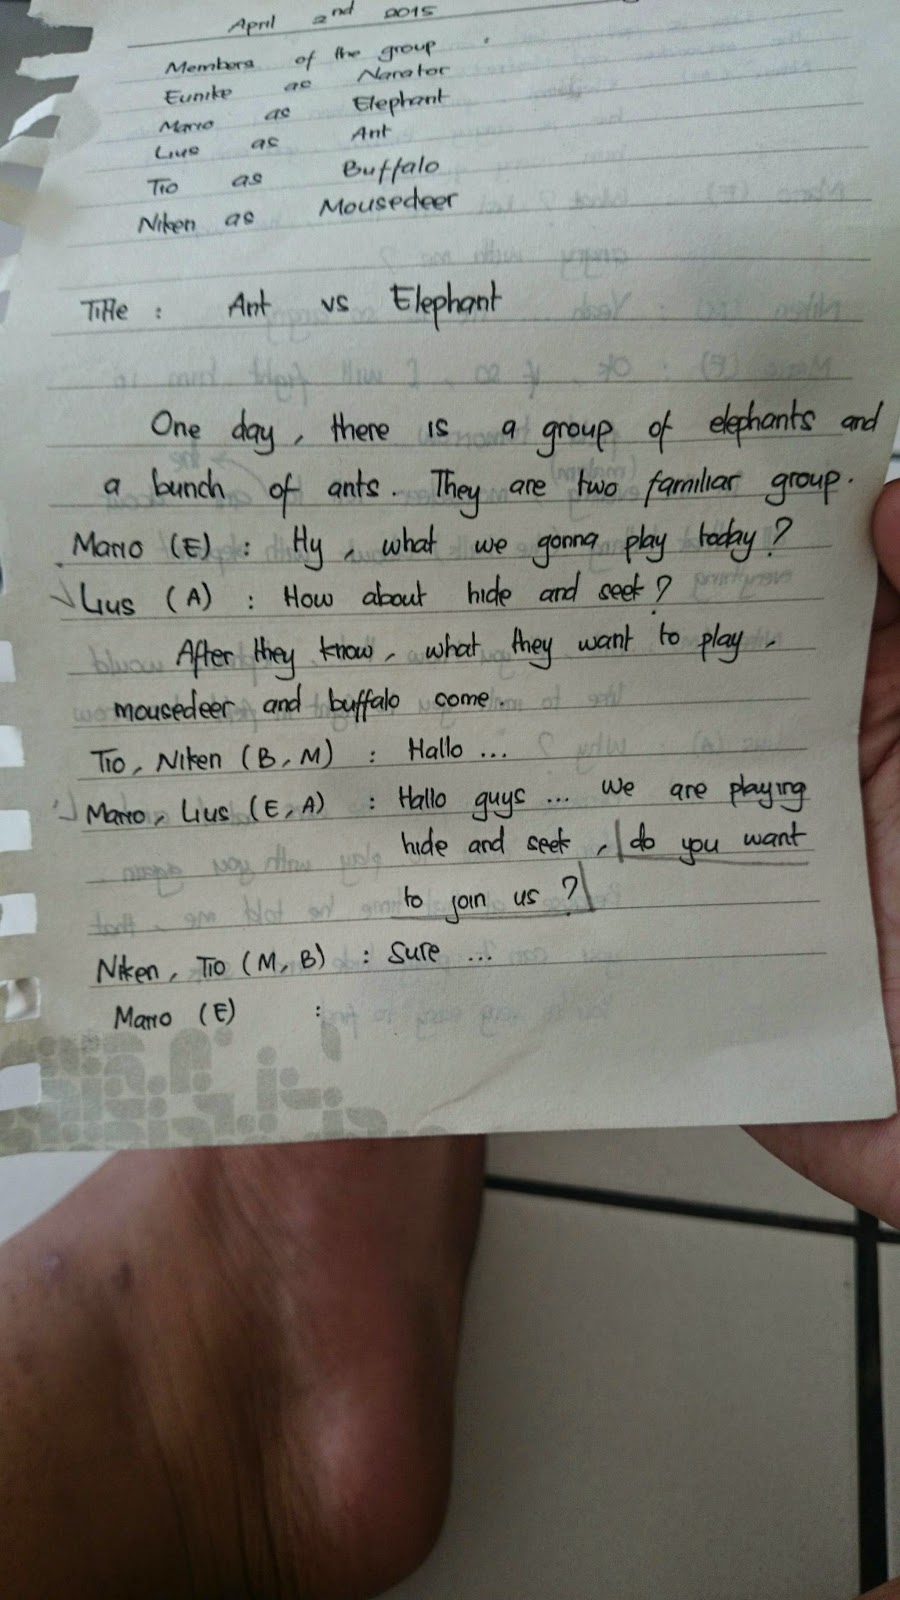 April 2nd 2015
Members of the group
Eunike as Narator
Mario as Elephant
Lius as Ant
Tio as Buffalo
Niken as Mousedeer
Title : Ant vs Elephant
One day, there is a group of elephants and
a bunch of ants. They are two familiar group.
Mario (E) : Hy, what we gonna play today?
Lius (A) : How about hide and seek?
After they know, what they want to play,
mousedeer and buffalo come.
Tio, Niken (B, M) : Hallo ...
Mario, Lius (E, A) : Hallo guys ... We are playing
hide and seek, do you want
to join us?
Niken, Tio (M, B) : Sure ...
Mario (E) :